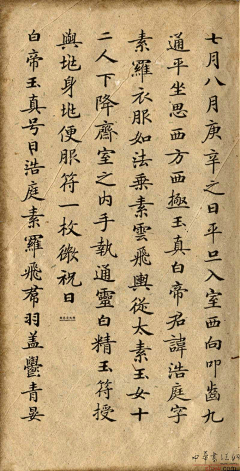 七月八月庚辛之日平旦入室西向叩齒九
通平坐思西方西極玉真白帝君諱浩庭字
素羅衣服如法乘素雲飛輿從太素玉女十
二人下降齋室之内手執通靈白精玉符授
與地身地便服符一枚微祝曰
白帝玉真号曰浩庭素羅飛帬羽盖鬱青晏